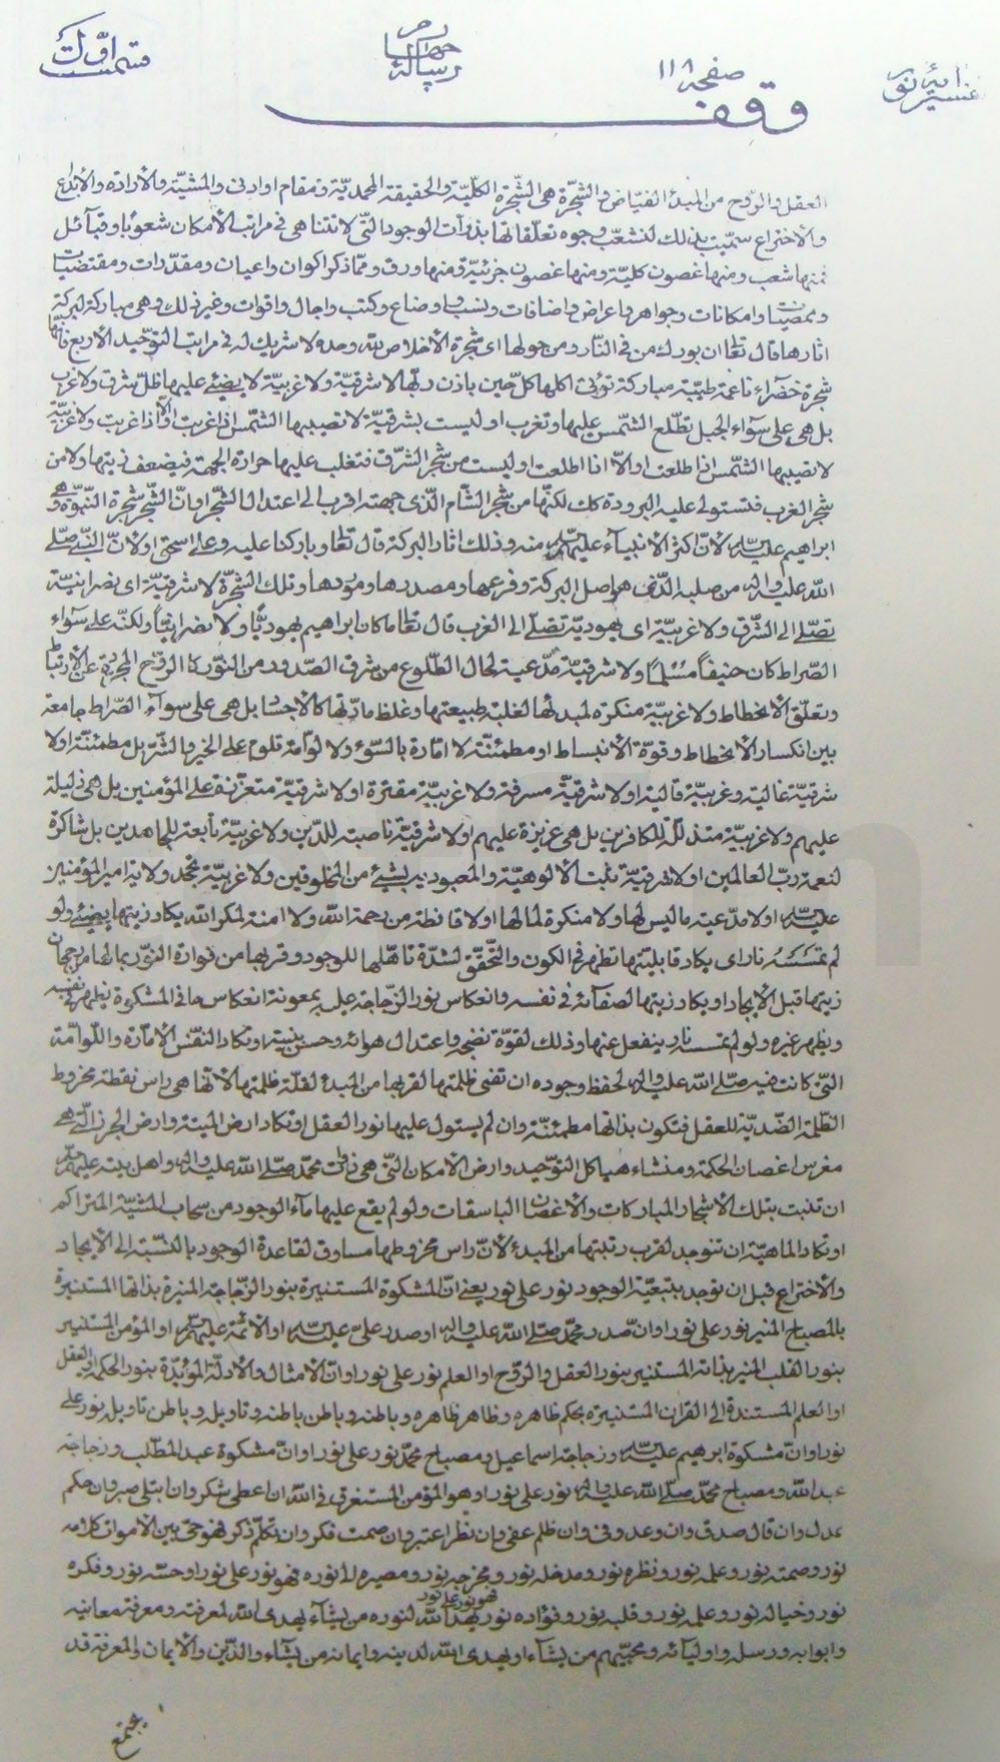 تفسیر آیه نور
رسالۀ چهارم
قسمت اول
صفحه ۱۱۸
وقف
العقل والروح من المبدأ الفيّاض والشجرة هى الشّجرة الكليّة والحقيقة المحمديّة ومقام او ادنى والمشيّة والأرادة والأبداع
والاختراع سمّيت بذلك لتشعّب وجوه تعلّقاتها بذوات الوجود التّى لا تتناهى فى مراتب الأمكان شعوبًا وقبآئل
منها شعب ومنها غصون كليّة ومنها غصون جزئيّة ومنها ورق وممّا ذكر اكوان واعيان ومقدّرات ومقتضيات
وممضيات وامكانات وجواهر واعراض واضافات ونسب واوضاع وكتب واجال واقوات وغير ذلك وهى مباركة لبركة
اثارها قال تعا ان بورك من فى النّار ومن حولها اى شجرة الأخلاص لله وحده لا شريك له فى مراتب التوحّيد الأربع فانّها
شجرة خضرآء ناعمة طيّبة مباركة تؤتى اكلها كلّ حين باذن ربّها لا شرقيّة ولا غربيّة لا يضئ عليها ظلّ شرق ولا غرب
بل هى على سوآء الجبل تطلع الشّمس عليها وتغرب او ليست بشرقيّة لا تصيبها الشّمس اذا غربت ولا غربيّة
لا تصيبها الشّمس اذا طلعت او ليست من شجر الشّرق فتغلب عليها حرارة الجهة فيضعف زيتها ولا من
شجر الغرب فتستولى عليه البرودة كك لكنّها من شجر الشّام الّذى جهته اقرب الى اعتدال الشّجر او انّ الشّجر شجرة النّبوّة وهى
ابراهيم عليه السّلم لانّ اكثر الانبيآء عليهم السّلم منه وذلك اثار البركة قال تعا وباركنا عليه وعلى اسحق او لانّ النّبى صلّى
الله عليه واله من صلبه الّذى هو اصل البركة وفرعها ومصدرها وموردها وتلك الشّجرة لا شرقيّة اى نصرانيّة
تصلّى الى الشّرق ولا غربيّة اى يهوديّة تصلّى الى الغرب قال تعا ما كان ابراهيم يهوديًّا ولا نصرانيًّا ولكنّه على سوآء
الصّراط كان حنيفاً مسلمًا ولا شرقيّة مدّعية لحال الطّلوع من شرق الصّدور من النّور كالروّح المجرّدة عن الارتباط
وتعلّق الأنحطاط ولا غربيّة منكرة لمبدئها لغلبة طبيعتها وغلظ مادّتها كالأجسا بل هى على سوآء الصّراط جامعة
بين انكسار الأنحطاط وقوّة الأنبساط او مطمئنّة لا امّارة بالسّوء ولا لوّامة تلوم على الخير والشّر بل مطمئنّة او لا
شرقيّة غالية وغربيّة قالية او لا شرقيّة مسرفة ولا غربيّة مقتّرة او لا شرقيّة متعزّزة على المؤمنين بل هى ذليلة
عليهم ولا غربيّة متذلّلة للكافرين بل هى عزيزة عليهم او لا شرقيّة ناصبة للدّين ولا غربيّة تابعة للجاهدين بل شاكرة
لنعمة ربّ العالمين او لا شرقيّة تثبت الألوهيّة والمعبوديّة لشئ من المخلوقين ولا غربيّة تجحد ولاية امير المؤمنين
عليه السّلم او لا مدّعية ما ليس لها ولا منكرة لما لها او لا قانطة من رحمة الله ولا امنة لمكر الله يكاد زيتها يضئ ولو
لم تمسسه نار اى يكاد قابليّتها تظهر فى الكون والتّحقّق لشدّة تأهّلها للوجود وقربها من فوارة النّور بما لها من رجحان
زيتها قبل الأيجاد او يكاد زيتها لصفآئه فى نفسه وانعكاس نور الزّجاجة عليه بمعونة انعكاس ما فى المشكوة يظهر فى نفسه
ويظهر غيره ولو لم تمسسه نار ينفعل عنها وذلك لقوّة نضجه واعتدال هوائه وحسن بنيته او تكاد النفّس الأمّارة واللّوامّة
التّى كانت فيه صلّى الله عليه واله لحفظ وجوده ان تفنى ظلمتها لقربها من المبدء لقلّة ظلمتها لأنّها هى راس نقطة مخروط
الظّلمة الضّديّة للعقل فتكون بذاتها مطمئنّة وان لم يستول عليها نور العقل او تكاد ارض الميتة وارض الجرز الّتى هى
مغرس اغصان الحكمة ومنشاء هياكل التوّحيد وارض الأمكان التّى هى ذات محمّد صلّى الله عليه واله واهل بيته عليهم السّلم
ان تنبت بتلك الأشجار المباركات والأغصان الباسقات ولو لم يقع عليها مآء الوجود من سحاب المشيّة المتراكم
او تكاد الماهيّة ان توجد لقرب رتبتها من المبدء لأنّ راس مخروطها مساوق لقاعدة الوجود بالنّسبّة الى الأيجاد
والأختراع قبل ان توجد بتبعيّة الوجود نور على نور يعنى انّ المشكوة المستنيرة بنور الزّجاجة المنيرة بذاتها المستنيرة
بالمصباح المنير نور على نور او انّ صدر محمّد صلّى الله عليه واله او صدر علىّ عليه السّلم او الأئمّة عليهم السّلم او المؤمن المستنير
بنور القلب المنير بذاته المستنير بنور العقل والرّوح او العلم نور على نور او انّ الأمثال والأدلّة المؤيّدة بنور الحكمة او العقل
او العلم المستندة الى القران المستنيرة بحكم ظاهره وظاهر ظاهره وباطنه وباطن باطنه وتاويله وباطن تاويله نور على
نور او انّ مشكوة ابرهيم عليه السّلم وزجاجة اسماعيل ومصباح محمّد نور على نور او انّ مشكوة عبد المطّلب وزجاجة
عبد الله ومصباح محمّد صلّى الله عليه واله نور على نور او هو المؤمن المستغرق فى الله ان اعطى شكر وان ابتلى صبر وان حكم
عدل وان قال صدق وان وعد وفى وان ظلم عفى وان نظر اعتبر وان صمت فكر وان تكلّم ذكر فهو حىّ بين الأموات كلامه
نور وصمته نور وعلمه نور ونظره نور ومدخله نور ومخرجه نور ومصيره الى نوره فهو نور على نور او حسّه نور وفكره
نور وخياله نور وعلمه نور وقلبه نور وفؤاده نور فهو نور على نور يهدى الله لنوره من يشآء يهدى الله لمعرفته ومعرفة معانيه
وابوابه ورسله واوليآئه ومحبيّهم من يشآء او يهدى الله لدينه وايمانه من يشآء والدّين والأيمان والمعرفة قد
يجتمع